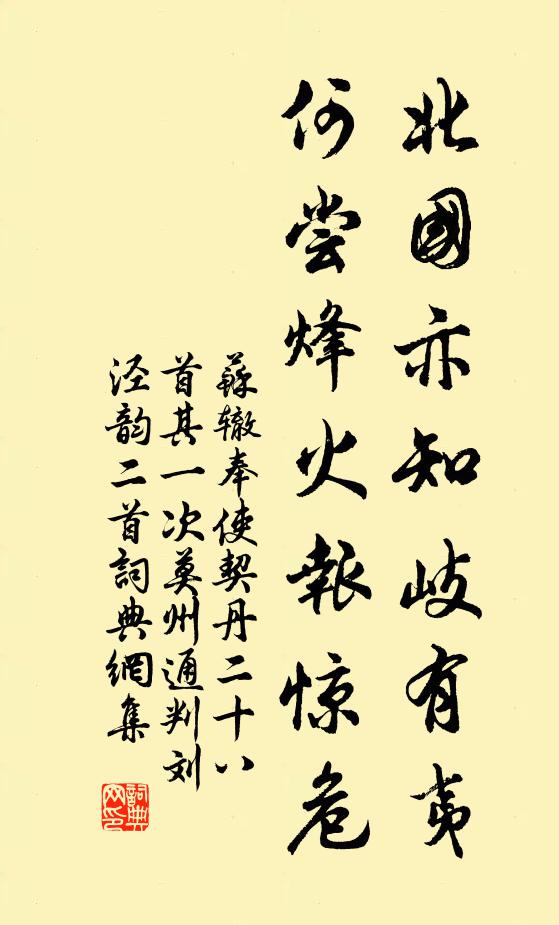 北國亦知岐有夷
何尝烽火報惊危
蘇辙奉使契丹二十八
首其一次莫州通判刘
泾韵二首詞典網集
詞典网印